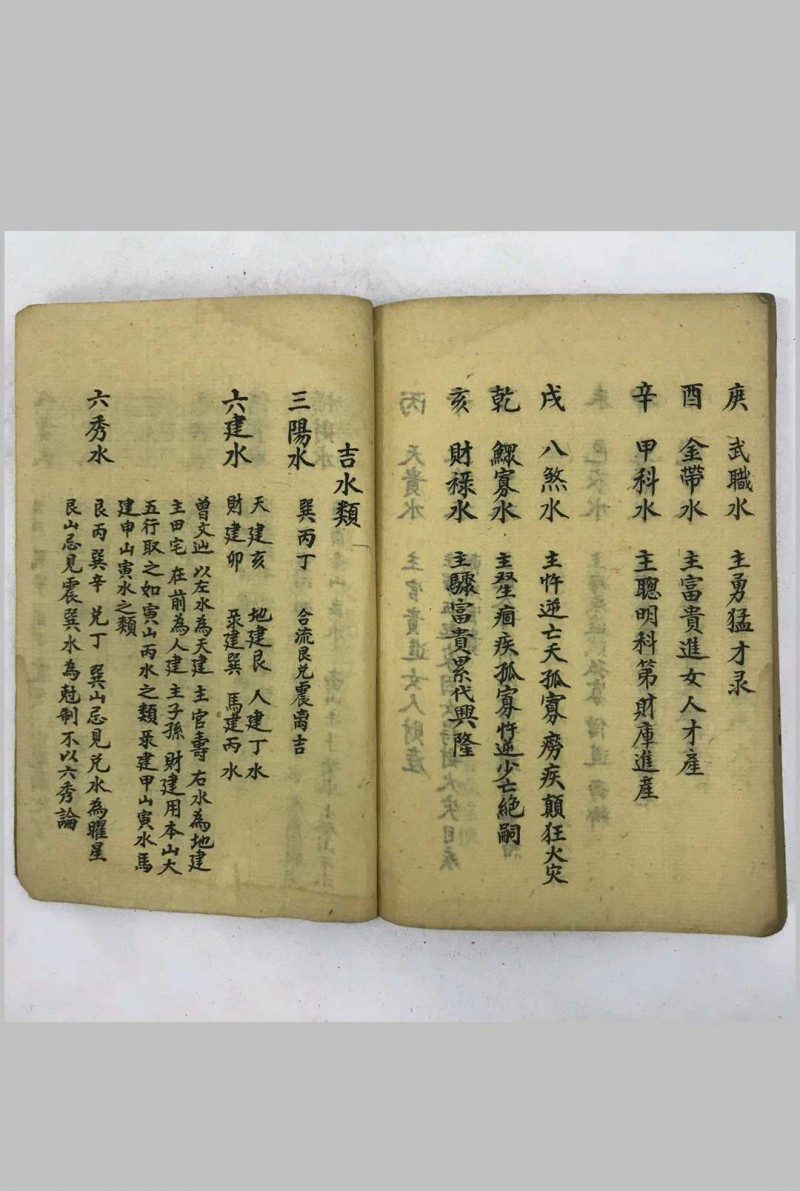 庚 武職水 主勇猛才录
酉 金帶水 主富貴進女人才產
辛 甲科水 主聰明科第財庫進產
戌 八煞水 主忤逆亡夭孤寡癆疾顛狂火灾
乾 鰥寡水 主瘂痼疾孤寡忤逆少亡絕嗣
亥 財祿水 主驟富貴累代興隆
吉水類
三陽水 巽丙丁 合流艮兌震离吉
六建水 天建亥 地建艮 人建丁水
財建卯 彔建巽 馬建丙水
曾文辿 以左水為天建 主官壽 右水為地建
主田宅 在前為人建 主子孫 財建用本山大
五行取之如寅山丙水之類 彔建甲山寅水馬
建申山寅水之類
六秀水 艮丙 巽辛 兌丁 巽山忌見兌水為曜星
艮山忌見震巽水為尅制不以六秀論